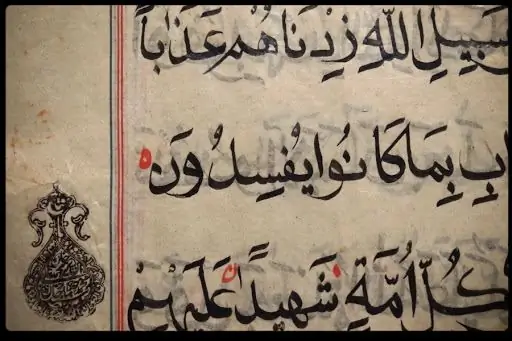 سَبِيلِ اللَّهِ زِدْنَاهُمْ عَذَابًا
بِ بِمَا كَانُوا يُفْسِدُونَ ه
كُلِّ أُمَّةٍ شَهِيدًا عَلَيْهِمْ